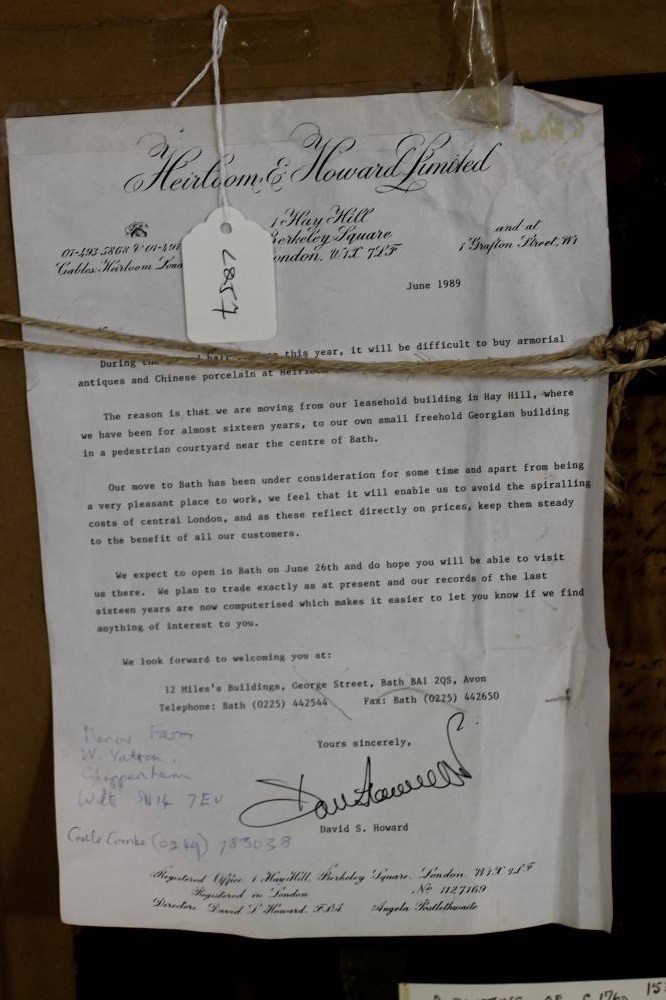 Heirloom & Howard Limited
1 Hay Hill
Berkeley Square
London, W1X 7LF
01-493 5868 & 01-491
Cables: Heirloom
and at
1 Grafton Street, W1
L857
June 1989
During the this year, it will be difficult to buy armorial
antiques and Chinese porcelain at
The reason is that we are moving from our leasehold building in Hay Hill, where
we have been for almost sixteen years, to our own small freehold Georgian building
in a pedestrian courtyard near the centre of Bath.
Our move to Bath has been under consideration for some time and apart from being
a very pleasant place to work, we feel that it will enable us to avoid the spiralling
costs of central London, and as these reflect directly on prices, keep them steady
to the benefit of all our customers.
We expect to open in Bath on June 26th and do hope you will be able to visit
us there. We plan to trade exactly as at present and our records of the last
sixteen years are now computerised which makes it easier to let you know if we find
anything of interest to you.
We look forward to welcoming you at:
12 Miles's Buildings, George Street, Bath BA1 2QS, Avon
Telephone: Bath (0225) 442544 Fax: Bath (0225) 442650
Manor Farm
W. Yatton.
Chippenham
Wilts SN14 7EU
Castle Combe (0249) 783038
Yours sincerely,
David S. Howard
Registered Office: 1 Hay Hill, Berkeley Square, London. W1X 7LF
Registered in London No 1127169
Directors: David S. Howard. FSA Angela Postlethwaite